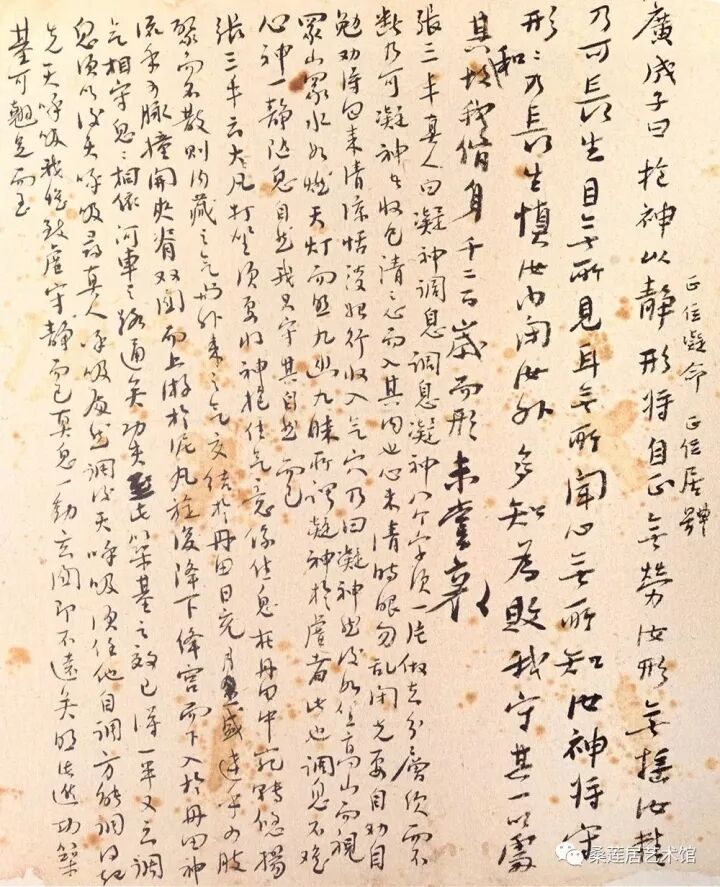 廣成子曰抱神以静形将自正無勞汝形無摇汝精
正位凝命 正位居體
乃可長生目無所見耳無所聞心無所知汝神将守
形形乃長生慎汝内閉汝外多知為敗我守其一以處
其和故我修身千二百歲而形未嘗衰
張三丰真人曰凝神調息調息凝神八个字須一片做去分層次而不
断乃可凝神者收已清之心而入其内也心未清時眼勿乱閉先要自劝自
勉劝得回来清凉恬淡始行收入气穴乃曰凝神然後如坐高山而視
众山众水如燃天灯而照九幽九昧所謂凝神於虚者此也調息不難
心神一静随息自然我只守其自然而已
張三丰云大凡打坐須要将神抱住气意係住息在丹田中宛轉悠揚
聚而不散則内藏之气與外来之气交結於丹田日充月盛達乎四肢
流乎百脉撞開夾脊双関而上游於泥丸旋復降下绛宫而下入於丹田神
气相守息息相依河車之路通矣功夫至此筑基之效已得一半又云調
息須以後天呼吸尋真人呼吸處然調後天呼吸須任他自調方能調得起
先天呼吸我惟致虚守静而已真息一動玄関即不遠矣照此進功筑
基可翘足而至
桑莲居艺术馆